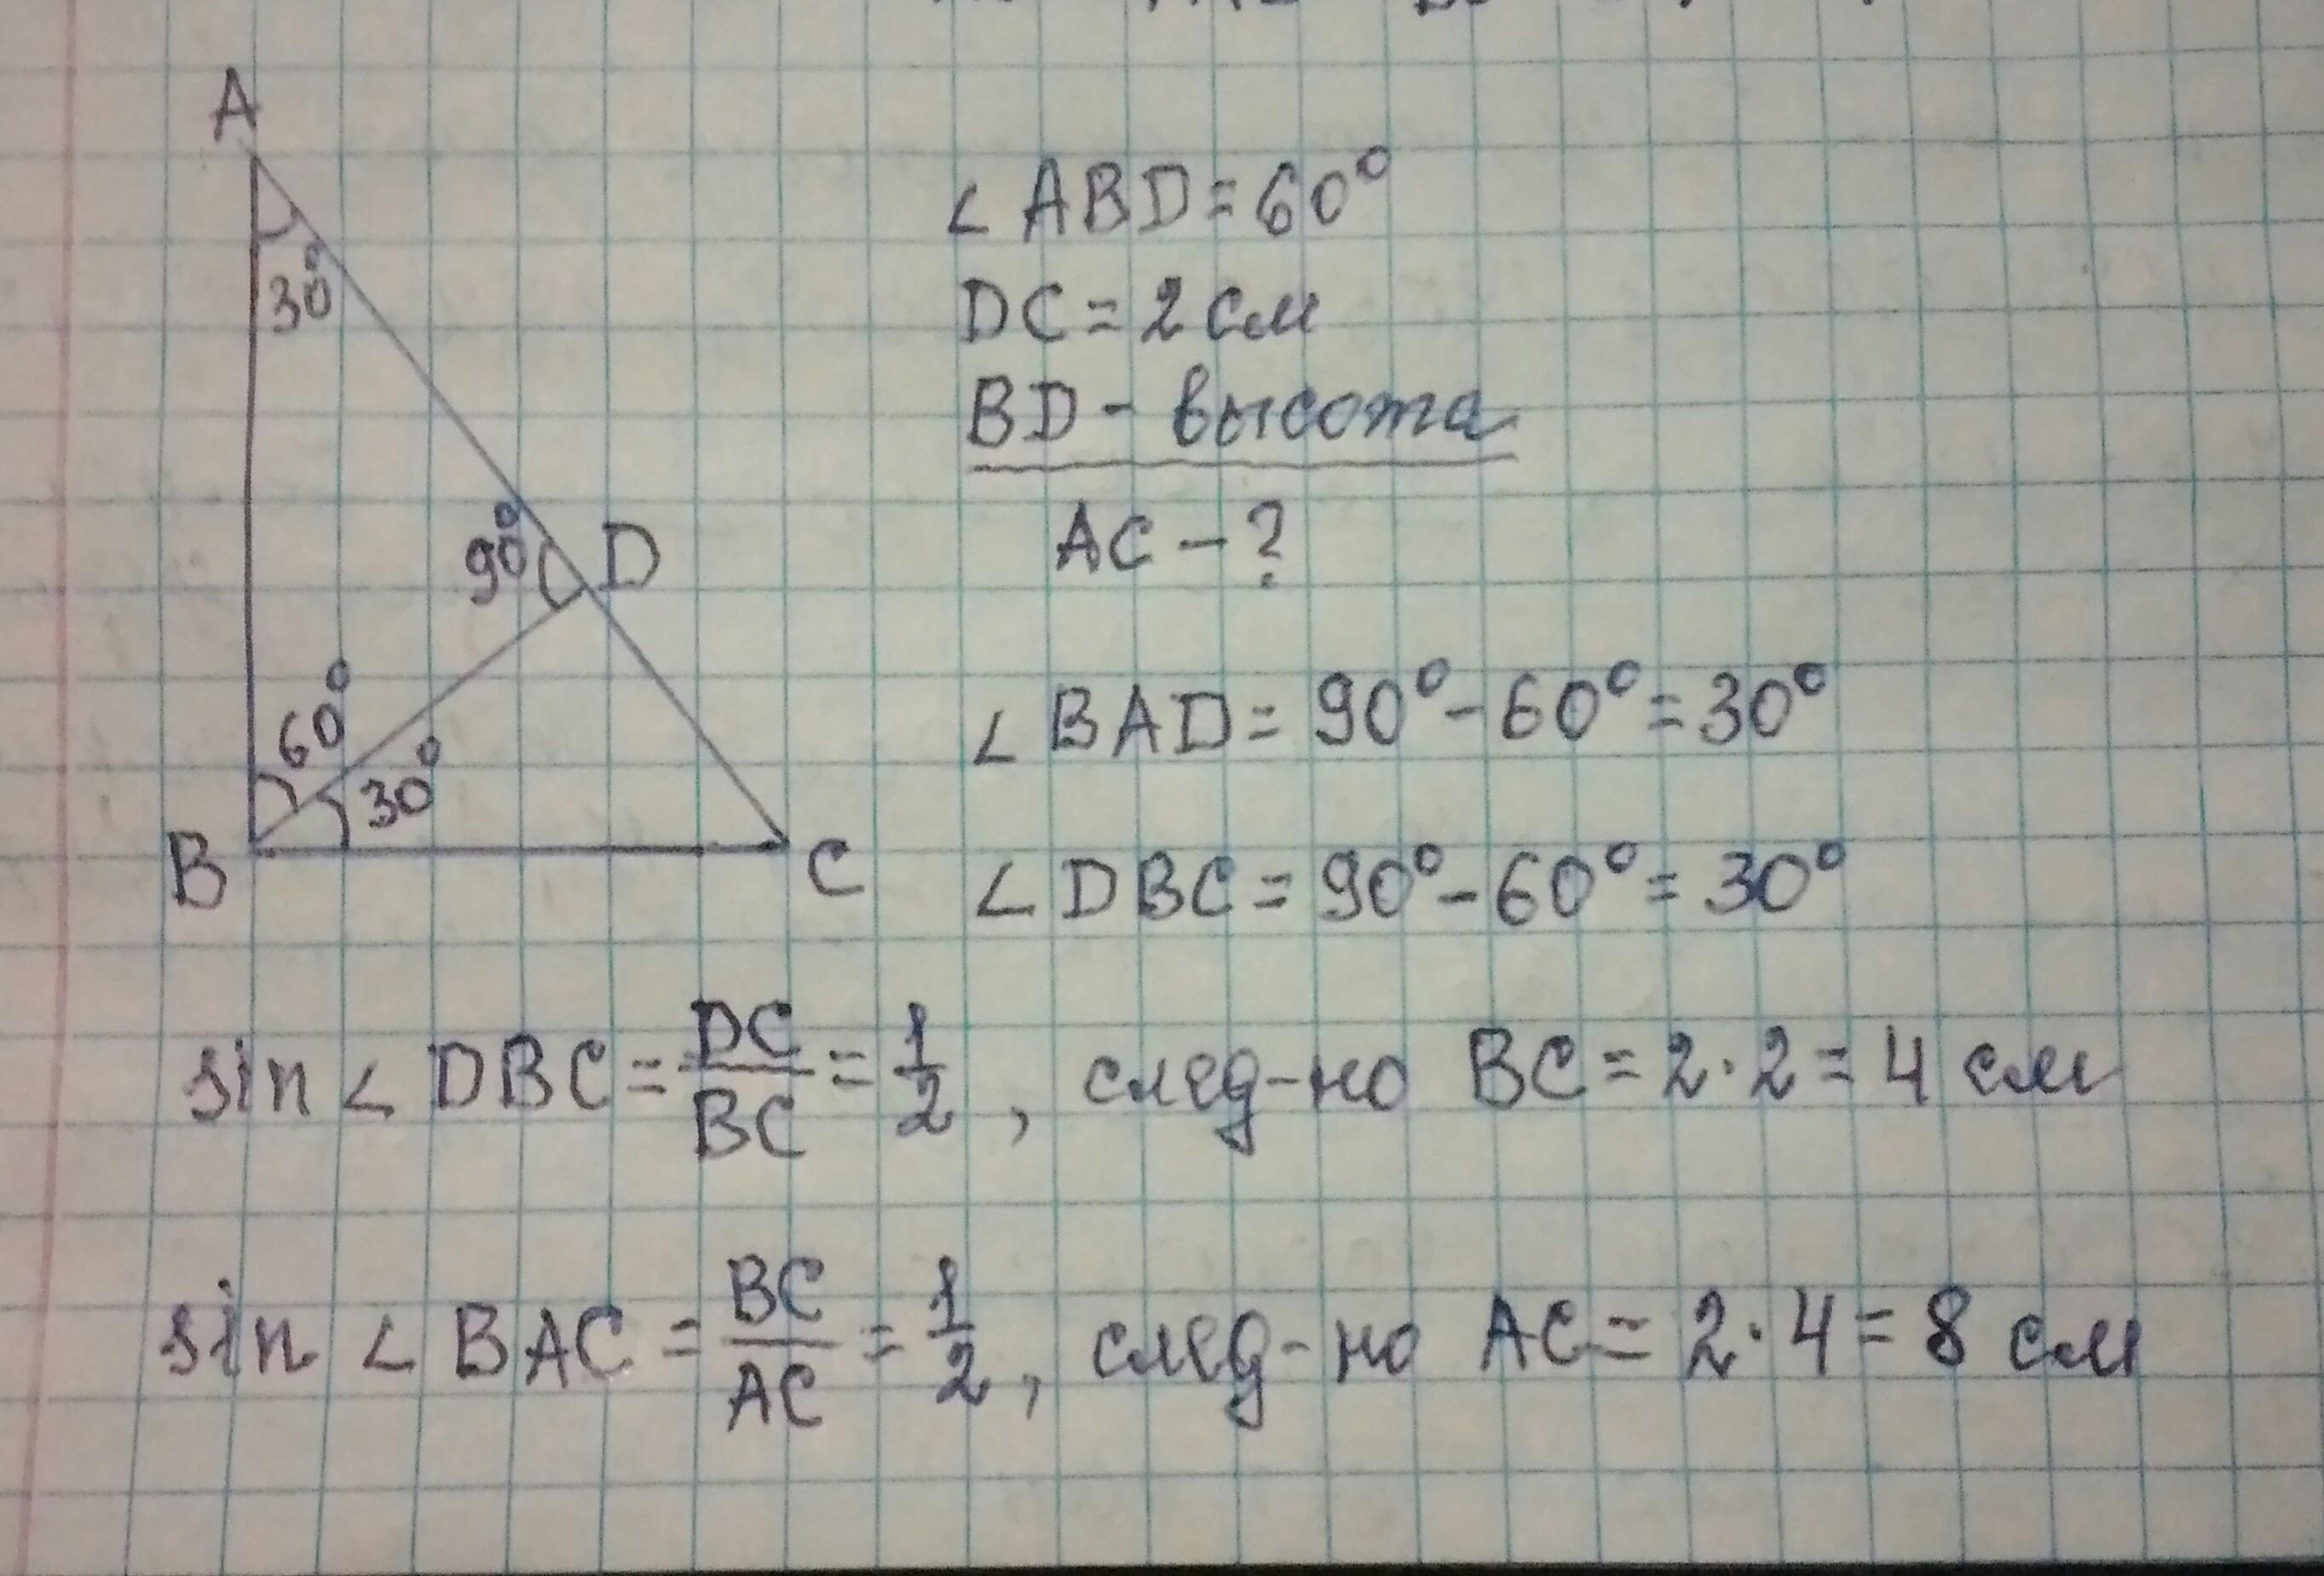 A
30°
90° D
60°
30°
B
C
∠ ABD = 60°
DC = 2 см
BD - высота
AC - ?
∠ BAD = 90° - 60° = 30°
∠ DBC = 90° - 60° = 30°
sin ∠ DBC = DC/BC = 1/2, след-но BC = 2 · 2 = 4 см
sin ∠ BAC = BC/AC = 1/2, след-но AC = 2 · 4 = 8 см